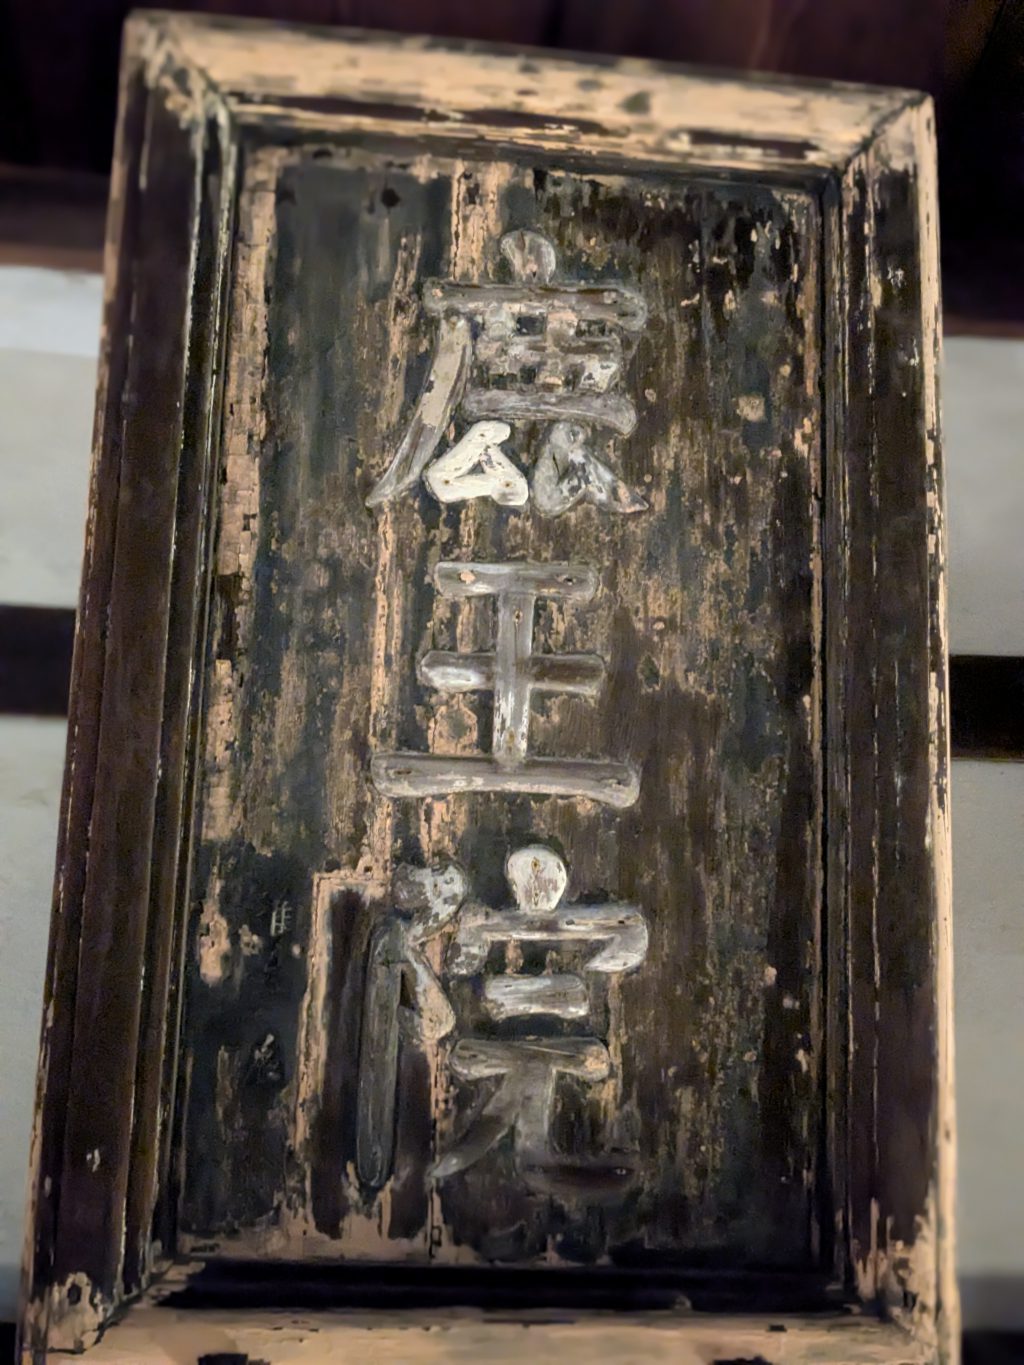 鹿王院